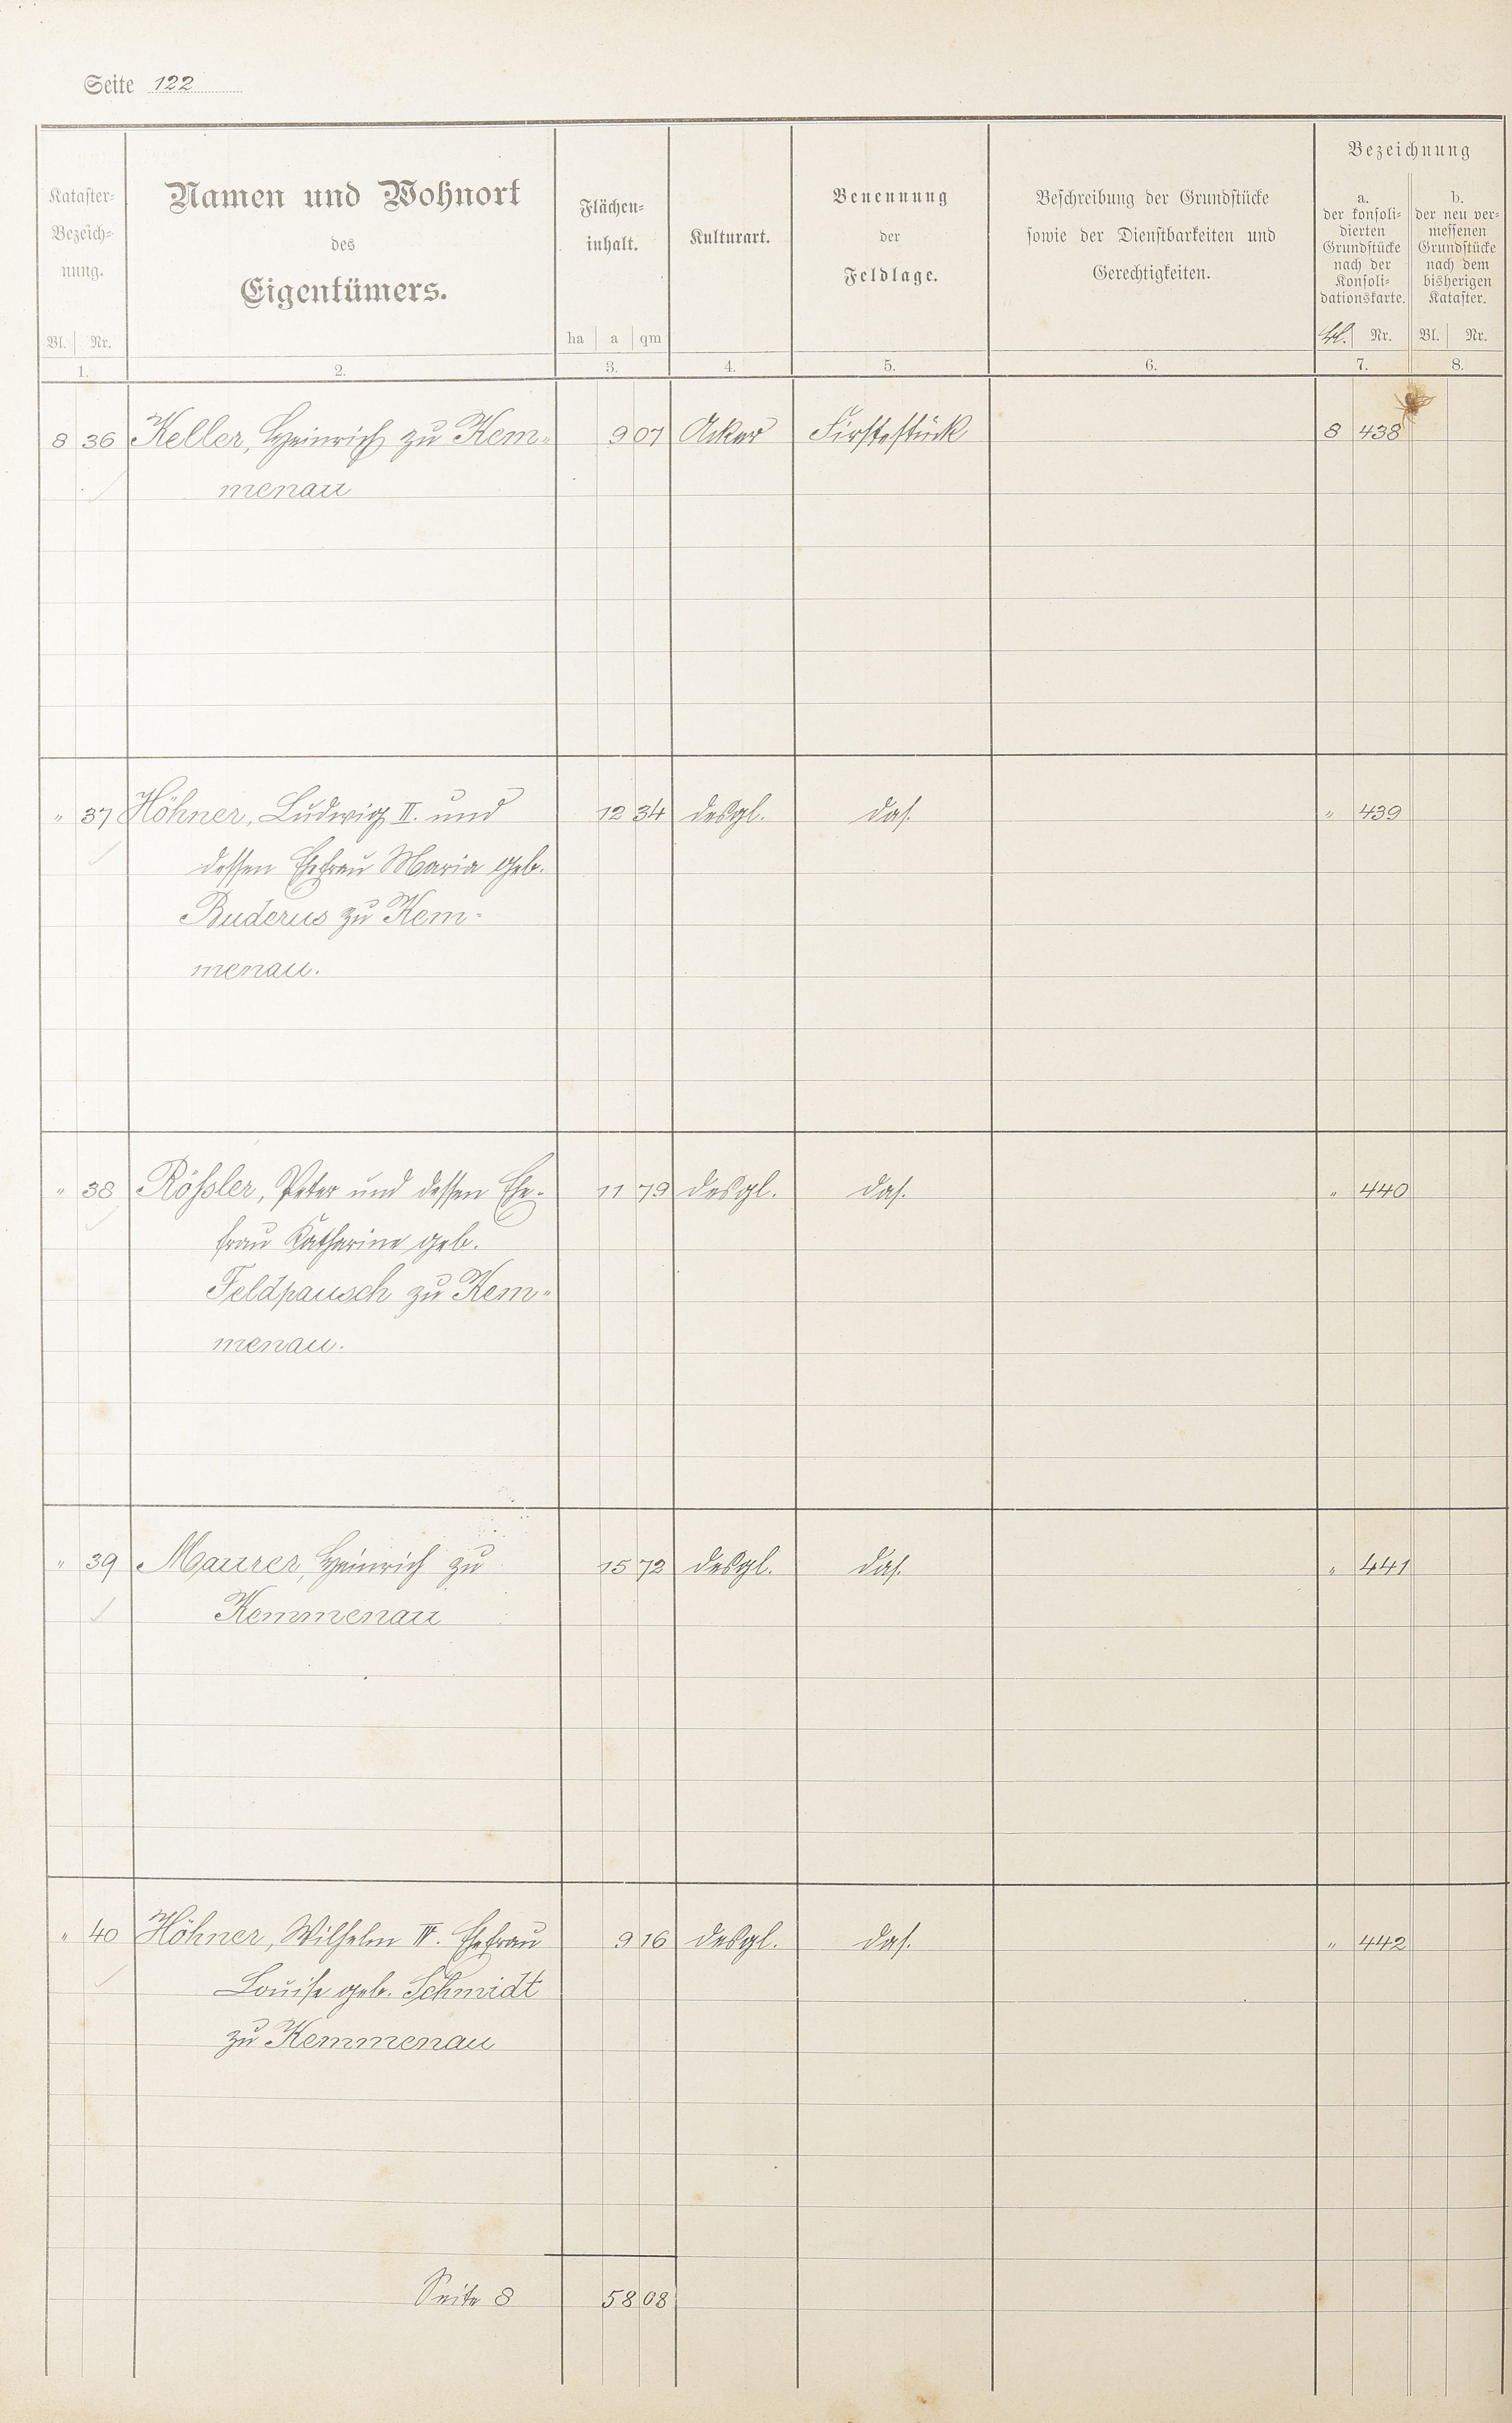 Seite 122
Kataster-Bezeichnung.
Bl. Nr.
Namen und Wohnort
des
Eigentümers.
Flächen-
inhalt.
ha a qm
Kulturart.
Benennung
der
Feldlage.
Beschreibung der Grundstücke
sowie der Dienstbarkeiten und
Gerechtigkeiten.
Bezeichnung
a.
der konsoli-
dierten
Grundstücke
nach der
Konsoli-
dationskarte.
Bl. Nr.
b.
der neu ver-
messenen
Grundstücke
nach dem
bisherigen
Kataster.
Bl. Nr.
1. 2. 3. 4. 5. 6. 7. 8.
8 36 Keller, Heinrich zu Kem- 9 07 Acker Firstestück 8 438
menau
" 37 Höhner, Ludwig II. und 12 34 desgl. das. " 439
dessen Ehefrau Maria geb.
Buderus zu Kem-
menau.
" 38 Rößler, Peter und dessen Ehe- 11 79 desgl. das. " 440
frau Katharine geb.
Feldpausch zu Kem-
menau.
" 39 Maurer, Heinrich zu 15 72 desgl. das. " 441
Kemmenau
" 40 Höhner, Wilhelm IV. Ehefrau 9 16 desgl. das. " 442
Louise geb. Schmidt
zu Kemmenau
Seite 8 58 08